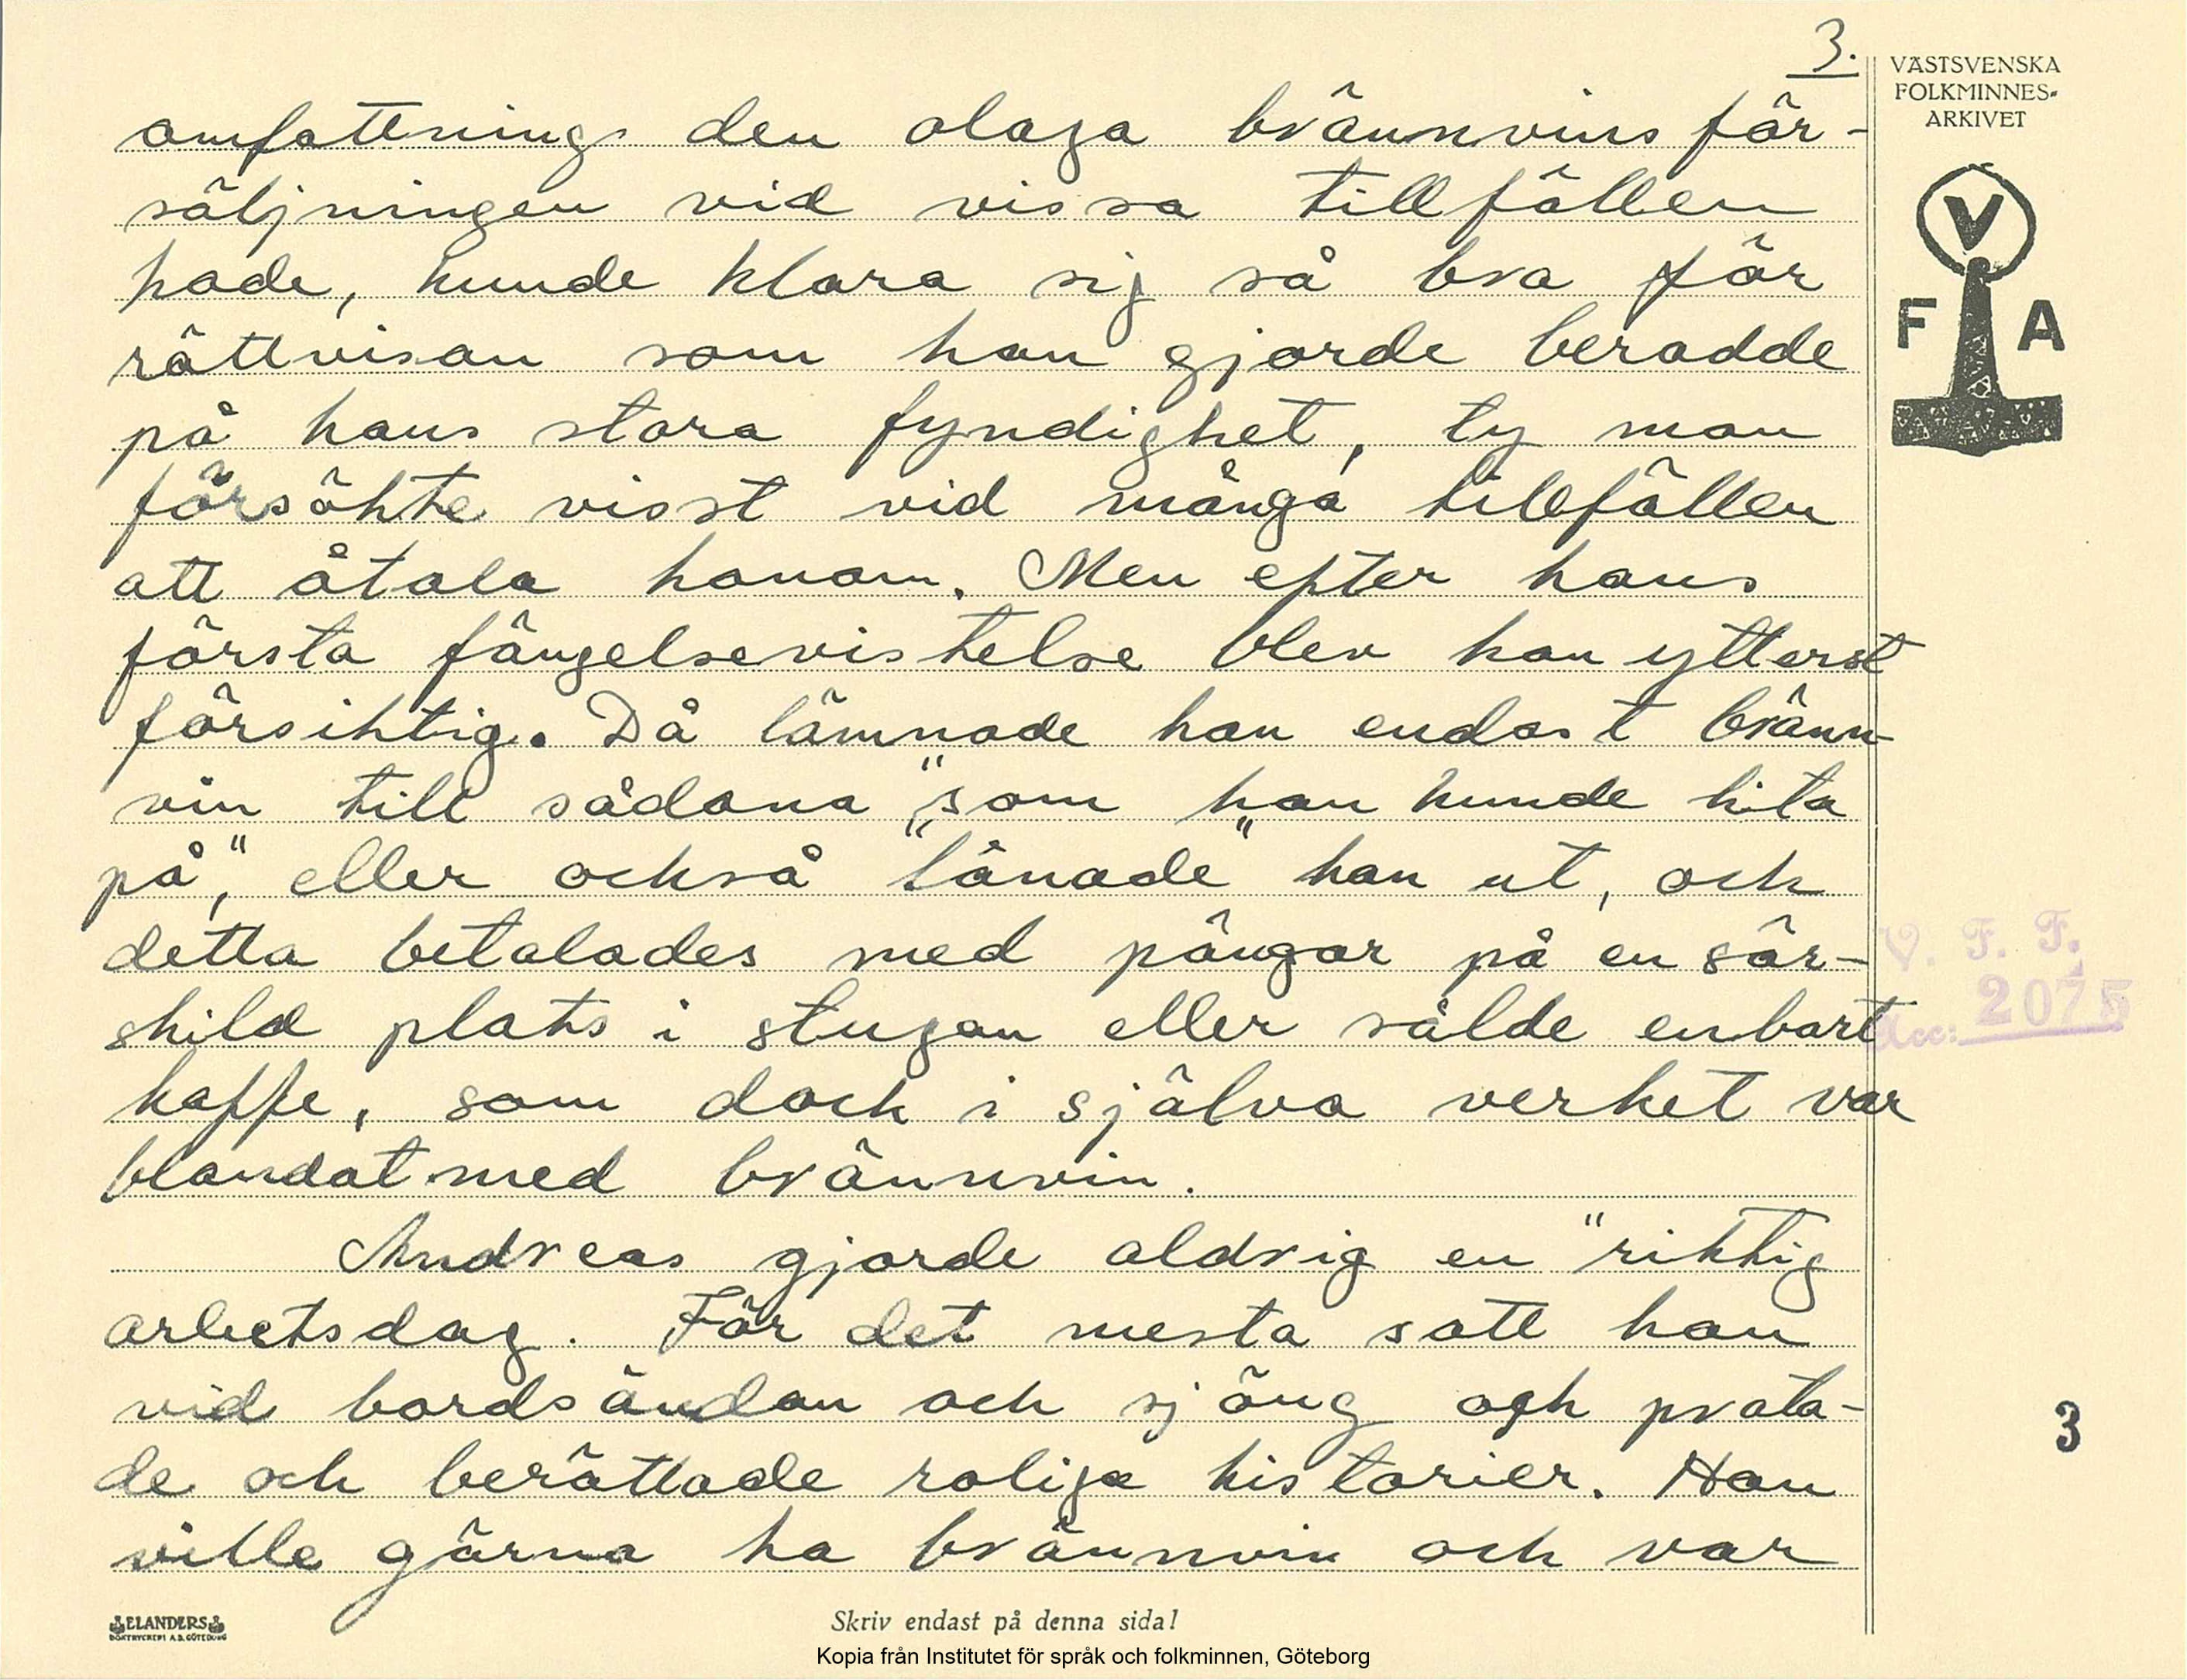 3.
VÄSTSVENSKA
FOLKMINNES-
ARKIVET
V
F A
omfattning den olaga brännvinsför-
säljningen vid vissa tillfällen
hade, kunde klara sig så bra för
rättvisan som han gjorde berodde
på hans stora fyndighet, ty man
försökte visst vid många tillfällen
att åtala honom. Men efter hans
första fängelsevistelse blev han ytterst
försiktig. Då lämnade han endast bränn-
vin till sådana "som han kunde lita
på", eller också "lånade" han ut, och
detta betalades med pängar på en sär-
skild plats i stugan eller sålde enbart
kaffe, som dock i själva verket var
blandat med brännvin.
Andreas gjorde aldrig en "riktig
arbetsdag. För det mesta satt han
vid bordsändan och sjöng och prata-
de och berättade roliga historier. Han
ville gärna ha brännvin och var
V. F. F.
Acc: 2075
3
ELANDERS
BOKTRYCKERI A.B. GÖTEBORG
Skriv endast på denna sida!
Kopia från Institutet för språk och folkminnen, Göteborg